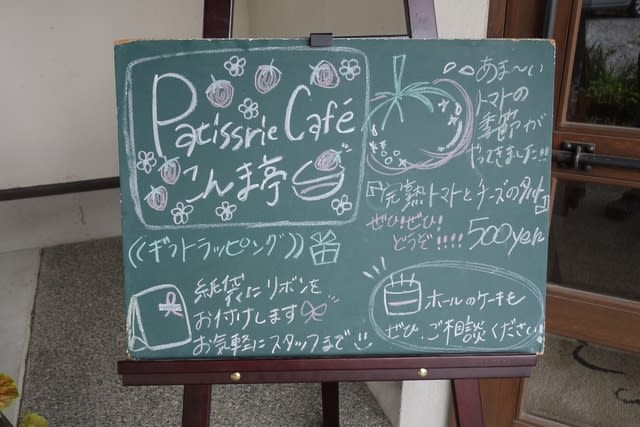 Patissrie Café
こんま亭
((ギフトラッピング))
紙袋にリボンを
お付けします
お気軽にスタッフまで
あま〜い
トマトの
季節が
やってきました!!
完熟トマトとチーズの
ぜひ!ぜひ!
どうぞ!!!!
500yen
ホールのケーキも
ぜひご相談ください